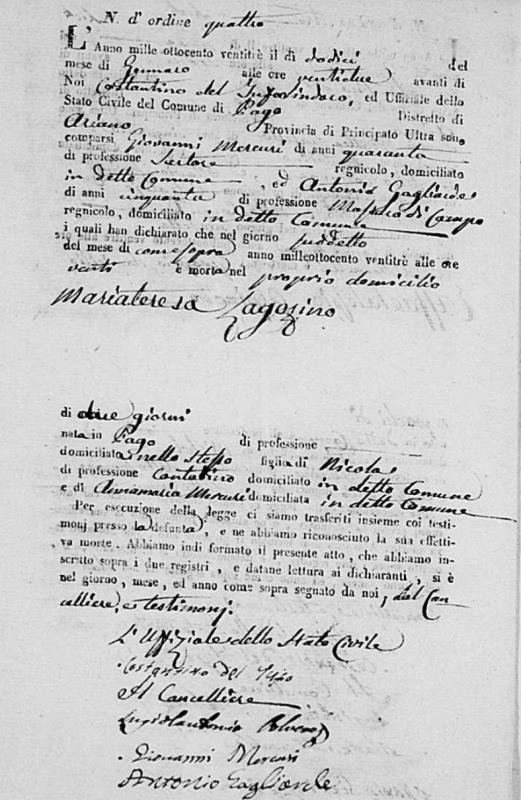 N. d' ordine quattro
L' Anno mille ottocento ventitrè il dì dodici del
mese di Gennaro alle ore ventidue avanti di
Noi Costantino del Sindaco, ed Uffiziale dello
Stato Civile del Comune di Pago Distretto di
Ariano Provincia di Principato Ultra sono
comparsi Giovanni Mercuri di anni quaranta
di professione Sartore regnicolo, domiciliato
in detto Comune, ed Antonio Gagliarde
di anni cinquanta di professione di Campo
regnicolo, domiciliato in detto Comune
i quali han dichiarato che nel giorno suddetto
del mese di come sopra anno milleottocento ventitrè alle ore
venti è morta nel proprio domicilio
Mariateresa
di due giorni
nata in Pago di professione
domiciliata nello stesso figlia di Nicola
di professione domiciliato in detto Comune
e di Annamaria Mercuri domiciliata in detto Comune
Per esecuzione della legge ci siamo trasferiti insieme coi testi-
monj presso la defunta, e ne abbiamo riconosciuto la sua effetti-
va morte. Abbiamo indi formato il presente atto, che abbiamo in-
scritto sopra i due registri, e datane lettura ai dichiaranti, si è
nel giorno, mese, ed anno come sopra segnato da noi, dal Can-
celliere, e testimonj.
L' Uffiziale dello Stato Civile
Costantino del
Il Cancelliere
Giovanni Mercuri
Antonio Gagliarde